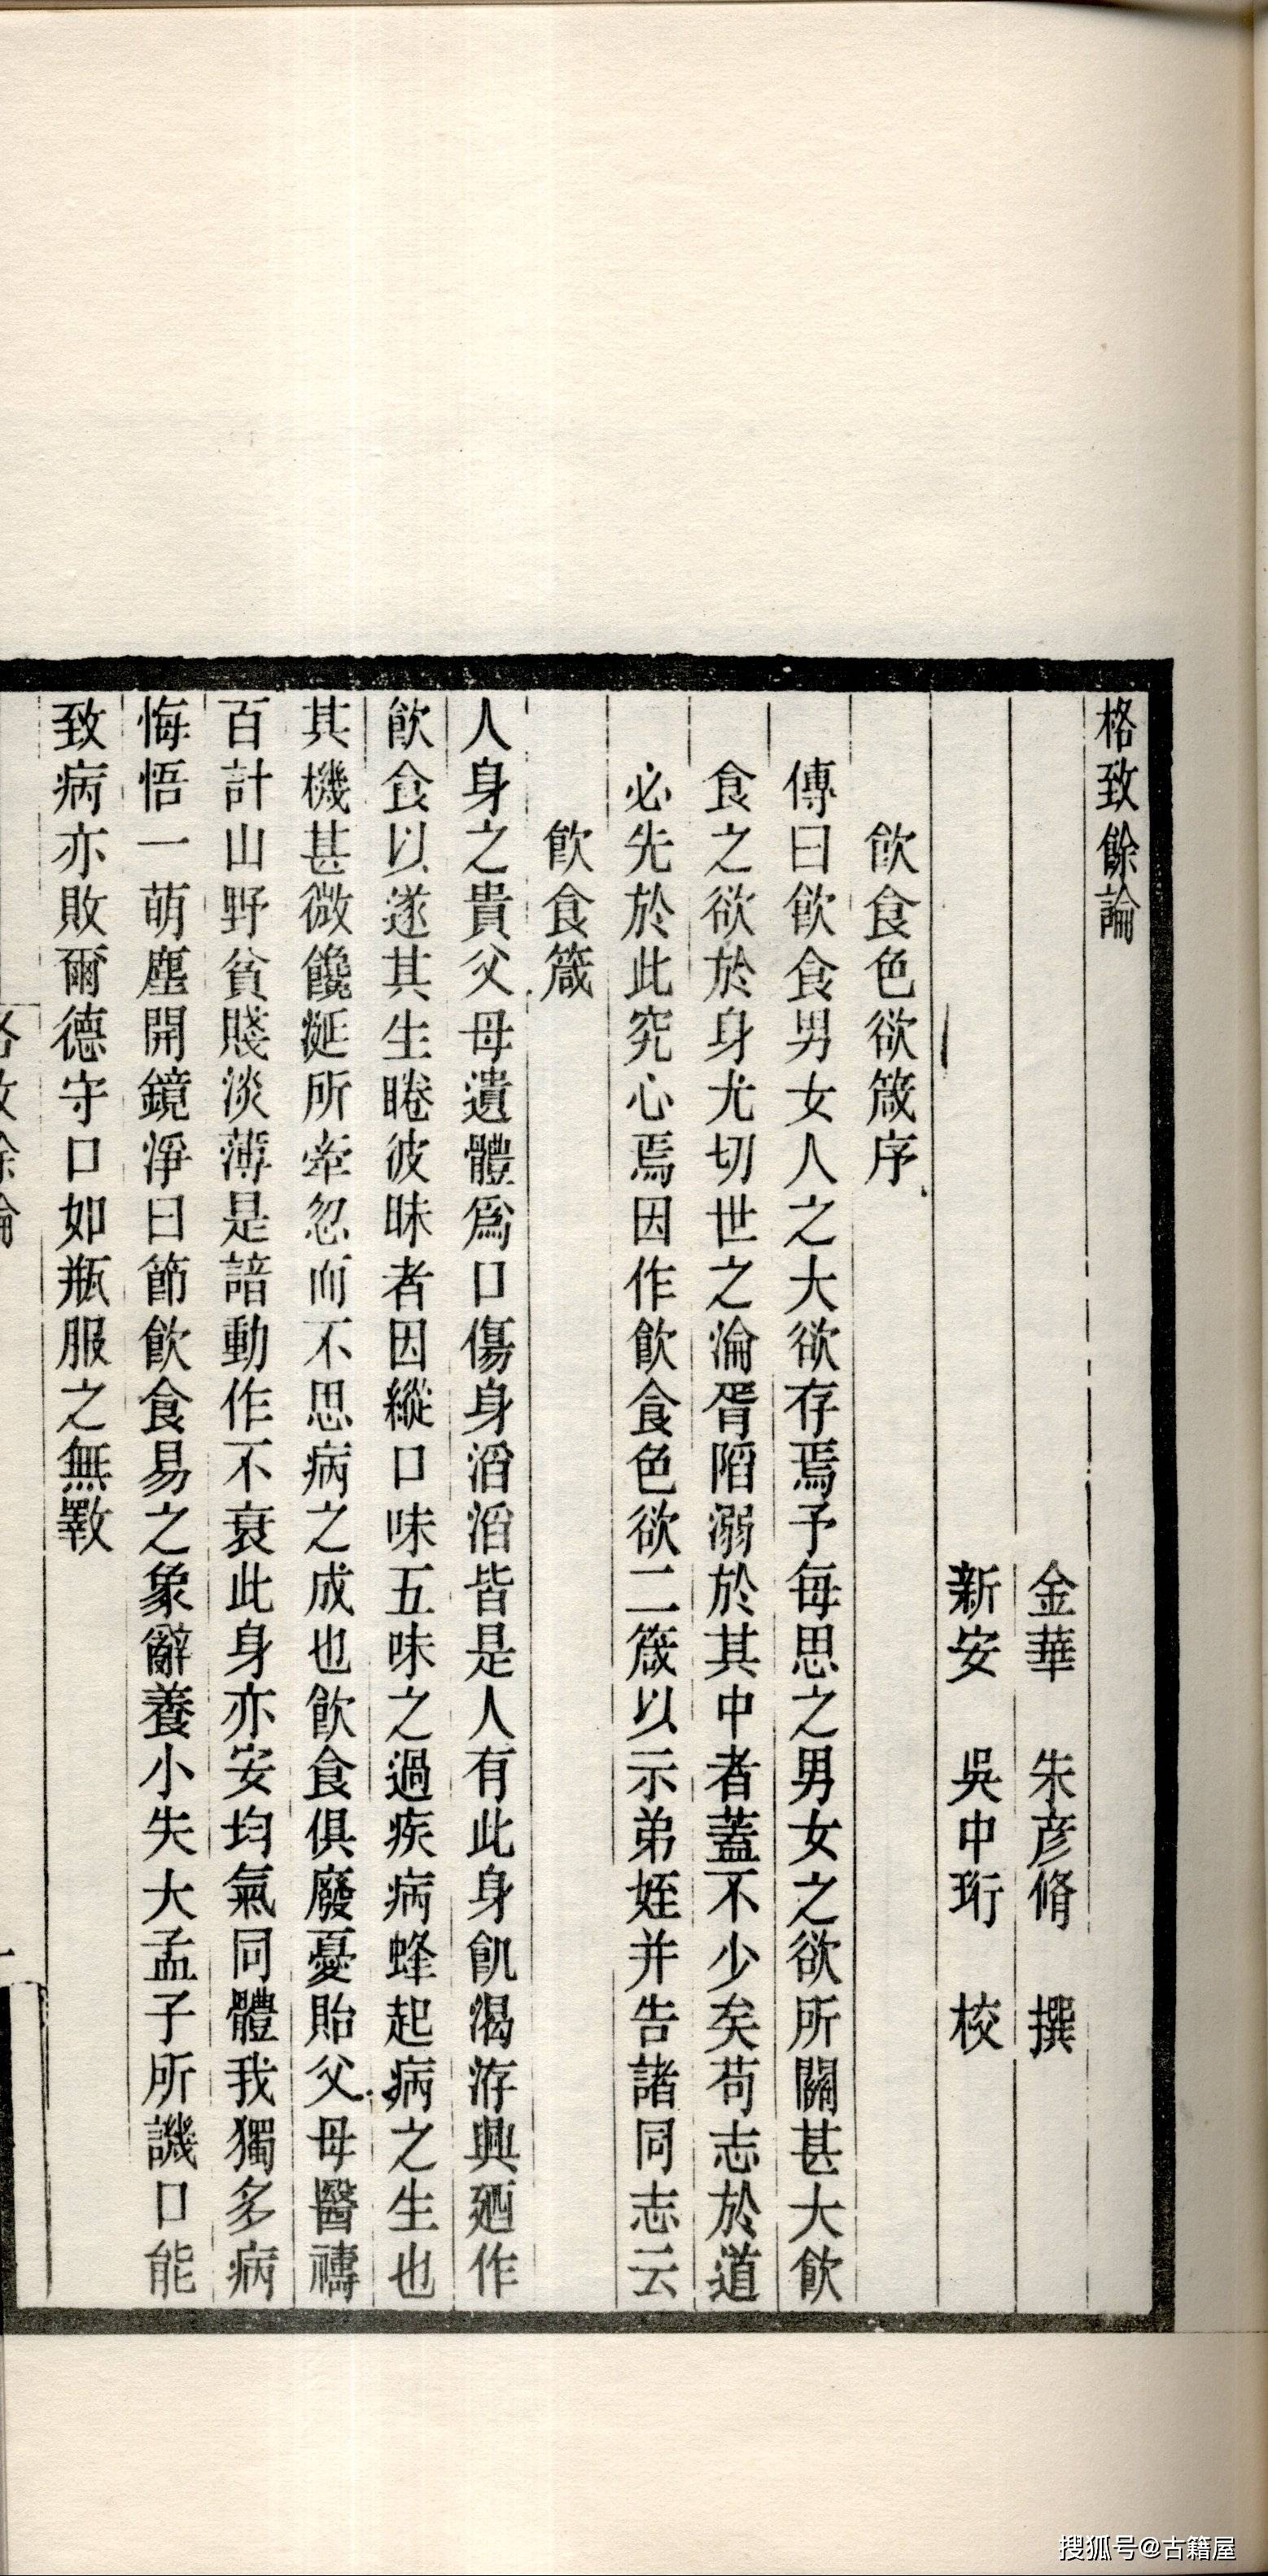 格致餘論
金華　朱彥脩　撰
新安　吳中珩　校
飲食色欲箴序
傳曰飲食男女人之大欲存焉予每思之男女之欲所關甚大飲
食之欲於身尤切世之淪胥陷溺於其中者蓋不少矣苟志於道
必先於此究心焉因作飲食色欲二箴以示弟姪并告諸同志云
飲食箴
人身之貴父母遺體爲口傷身滔滔皆是人有此身飢渴洊興廼作
飲食以遂其生睠彼昧者因縱口味五味之過疾病蜂起病之生也
其機甚微饞涎所牽忽而不思病之成也飲食俱廢憂貽父母醫禱
百計山野貧賤淡薄是諳動作不衰此身亦安均氣同體我獨多病
悔悟一萌塵開鏡淨曰節飲食易之象辭養小失大孟子所譏口能
致病亦敗爾德守口如瓶服之無斁
搜狐号@古籍屋